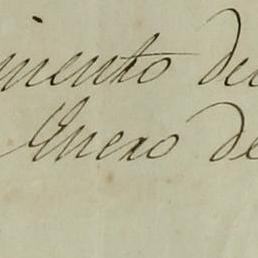 imento de
Enero de